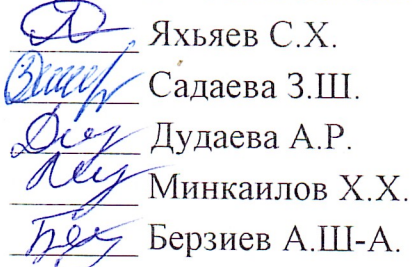 Яхьяев С.Х.
Садаева З.Ш.
Дудаева А.Р.
Минкаилов Х.Х.
Берзиев А.Ш-А.